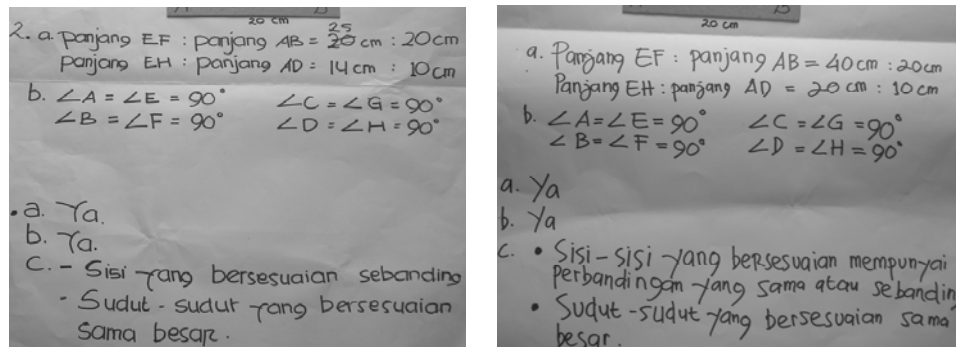 20 cm
2. a. panjang EF : panjang AB = 25 cm : 20cm
panjang EH : panjang AD = 14cm : 10cm
b. ∠A = ∠E = 90° ∠C = ∠G = 90°
∠B = ∠F = 90° ∠D = ∠H = 90°
a. Ya.
b. Ya.
C. - Sisi yang bersesuaian sebanding
- Sudut - sudut yang bersesuaian
sama besar.
20 cm
a. Panjang EF : panjang AB = 40cm : 20cm
Panjang EH : panjang AD = 20 cm : 10cm
b. ∠A = ∠E = 90° ∠C = ∠G = 90°
∠B = ∠F = 90° ∠D = ∠H = 90°
a. Ya
b. Ya
C. • Sisi - sisi yang bersesuaian mempunyai
perbandingan yang sama atau sebandin
• Sudut - sudut yang bersesuaian sama
besar.